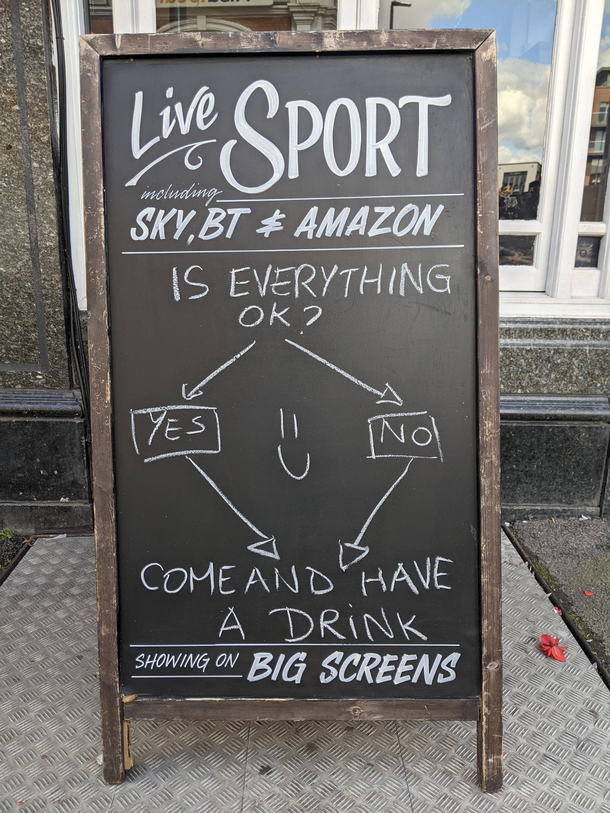 Live SPORT
including
SKY, BT & AMAZON
IS EVERYTHING
OK?
YES
NO
COME AND HAVE
A DRINK
SHOWING ON BIG SCREENS